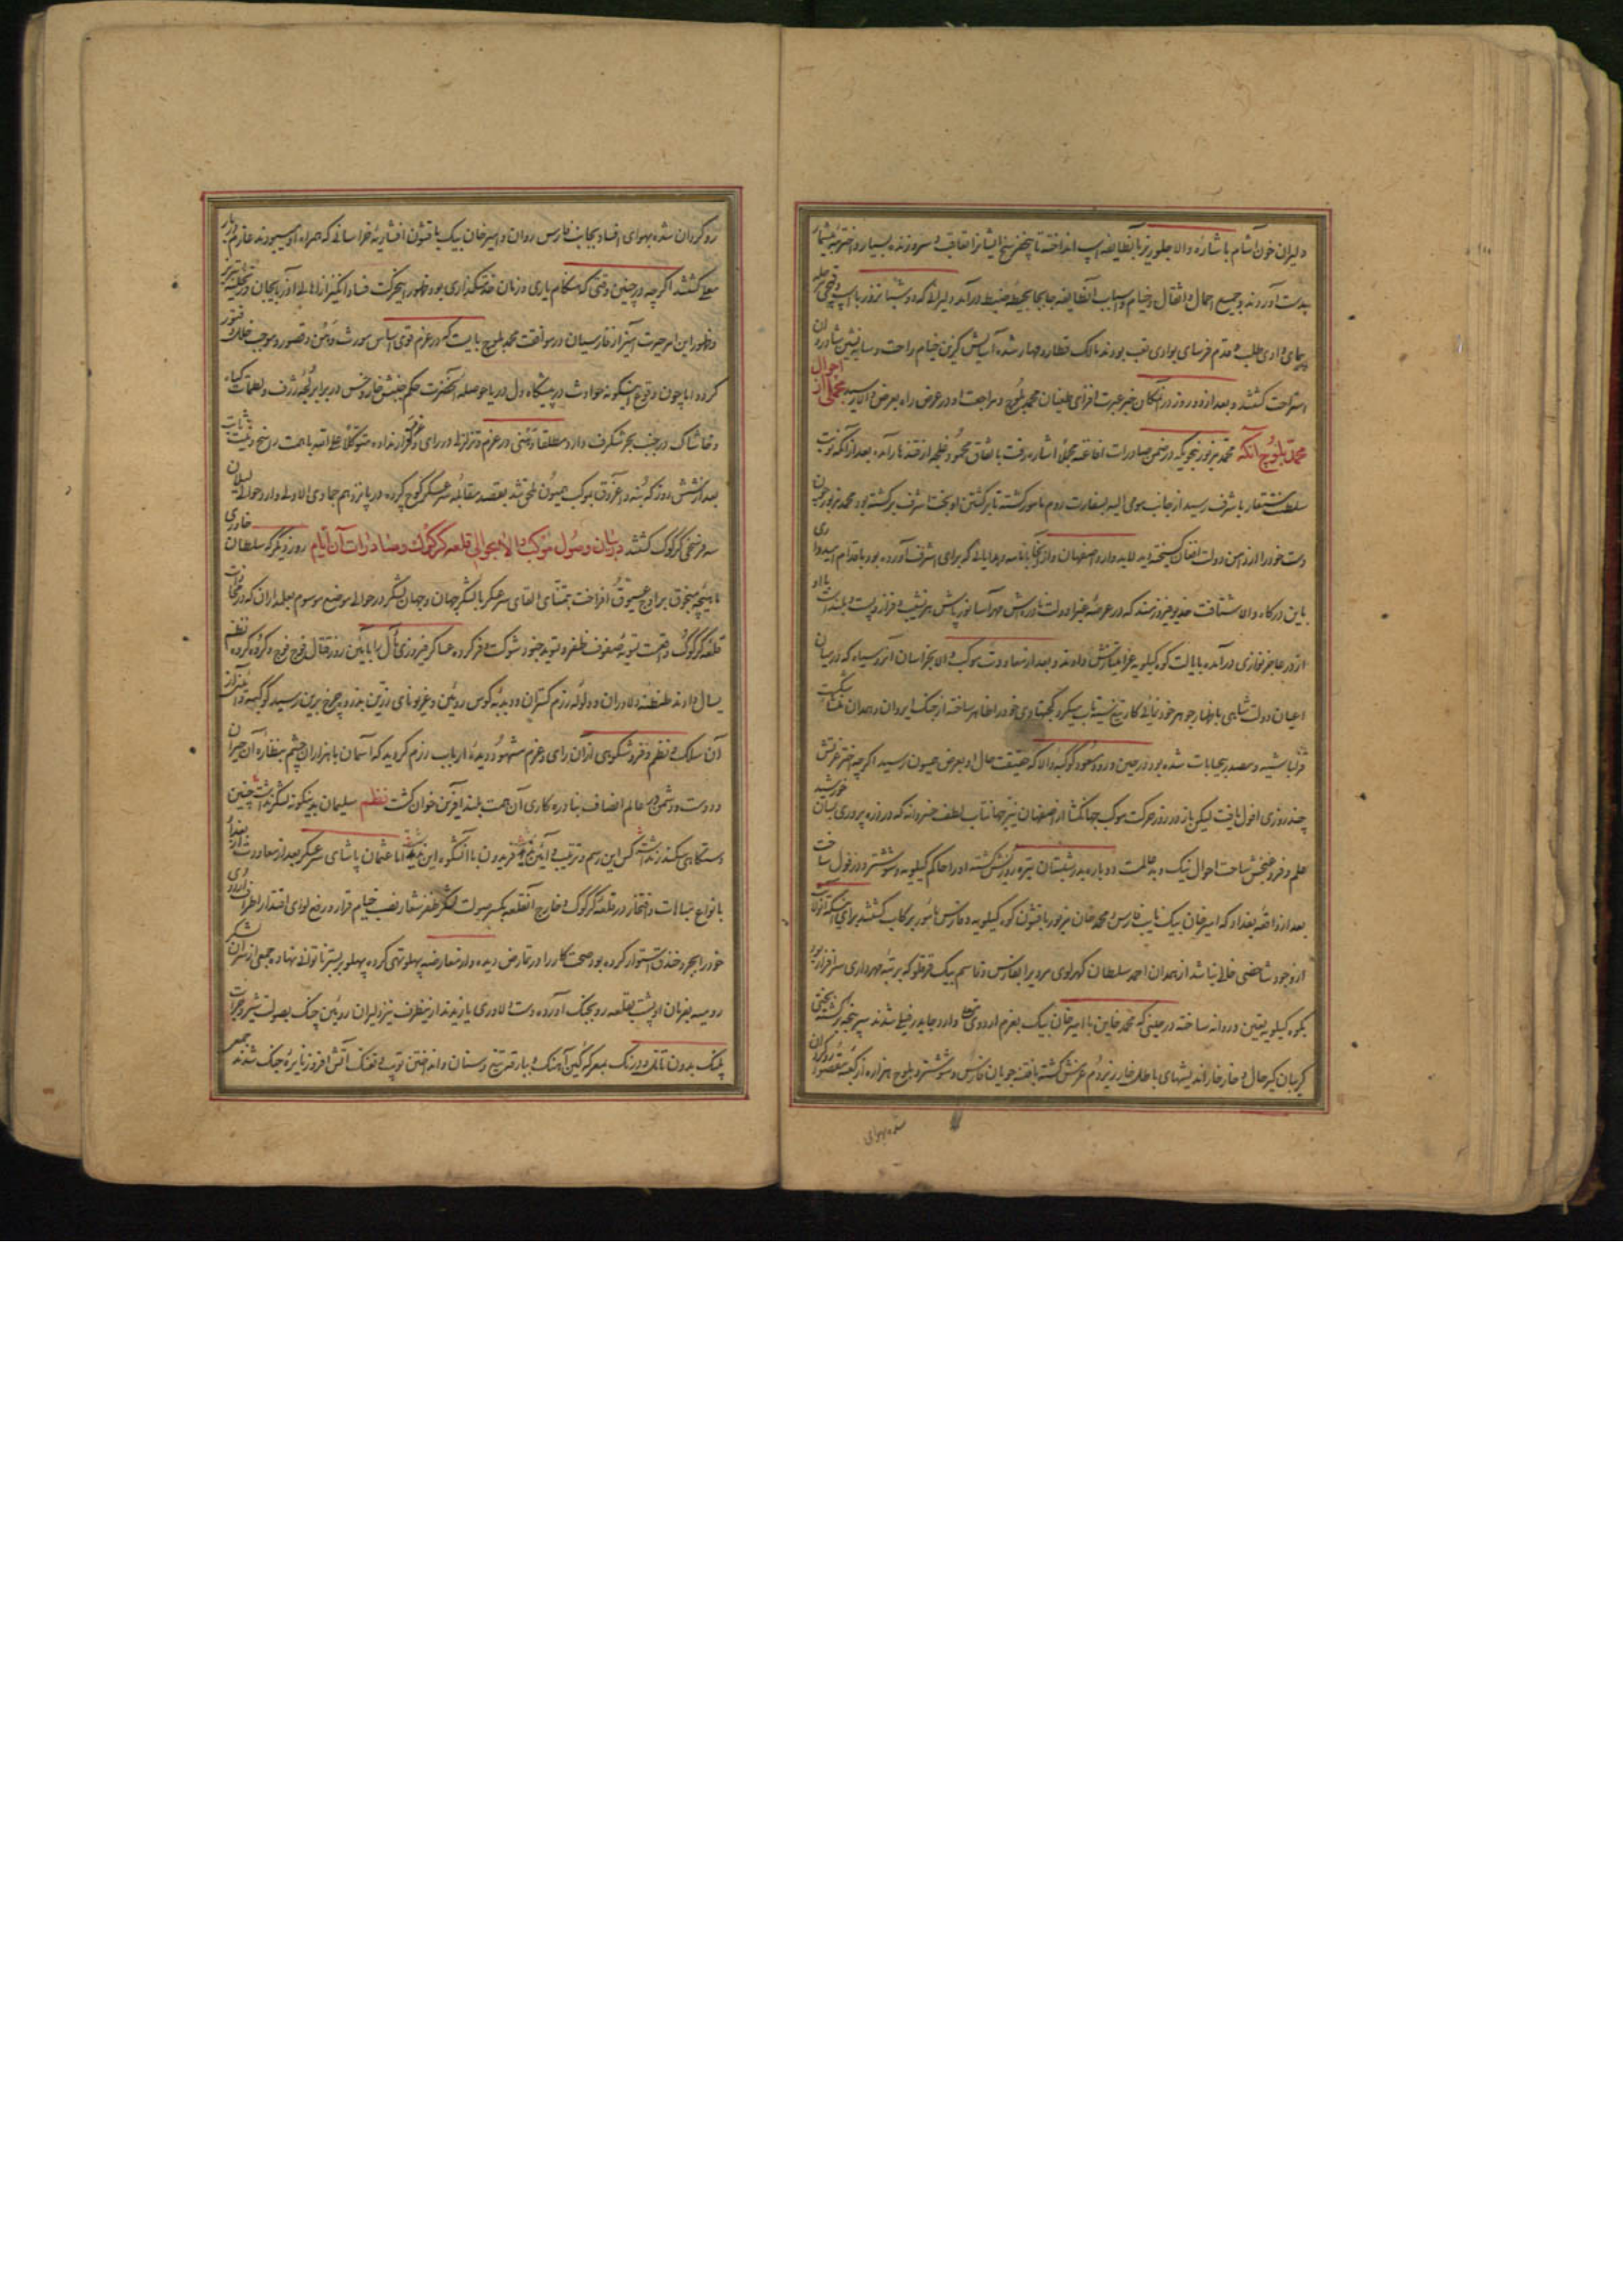 دلیران خون آشام باشارهٔ والا جلوریز بآنطایفه اسب انداخته تا پنجفرسخ ایشانرا تعاقب و سر و زنده بسیار و اخترمهٔ بیشمار
بدست آوردند و جمیع احمال و اثقال و خیام و اسباب آنطایفه جابجا بحیطهٔ ضبط درآمد دلیرانی که دو شبانروز با اسپ
پیمای وادی طلب و قدم فرسای بوادی تعب بودند مالک قطار و مهار شده آسایش گزین خیام راحت و سایه نشین شادروان
استراحت گشتند و بعد از دو روز در آنمکان خبر عبرت افزای طغیان محمد بلوچ و مراجعت او در عرض راه بعرض والا رسید مجملی از احوال
محمد بلوچ آنکه محمد مزبور بنحویکه در ضمن صادرات افاغنه مجملا اشاره رفت باتفاق محمود غلیجه از قندهار آمده بعد از آنکه نوبت
سلطنت مستعار باشرف رسید از جانب او بسفارت روم مامور گشته تا برگشتن او بخت اشرف برگشته بود محمد مزبور چون
دست خود را از دامن دولت افغان گسیخته دید وارد اصفهان و از آنجا با نامه و هدایائی که برای اشرف آورده بود باقدام امیدواری
باین درگاه والا شتافت خدیو فیروزمند که در عرصهٔ خیر دولت بارش مهر آسا نور پاش هر نشیب و فراز و پست و بلند است با او
از در عاجز نوازی درآمده بایالت کوه کیلویه عز امتیازش دادند و بعد از معاودت موکب والا بخراسان آنروسیاه که در میان
اعیان دولت شاهی باظهار جوهر خودنمائی کار تیغ سیه تاب میکرد کجنهادی خود را ظاهر ساخته از جنگ ایروان و همدان شکست
قزلباشیه و مصدر خیانات شده بود در حین ورود مسعود کوکبهٔ والا که حقیقت حال او بعرض همیون رسید اگرچه اختر عزتش
چند روزی افول یافت لیکن باز در روز حرکت موکب جهانگشا از اصفهان نیر جهانتاب لطف خسروانه که در ذره پروری بسان خورشید
علم و فروغ بخش ساحت احوال نیک و بد عالمست دوباره بدر شبستان تیره روزیش گشته او را حاکم کیلویه و شوشتر و دزفول ساخت
بعد از واقعهٔ بغداد که امیر خان بیک نایب فارس و محمد خان مزبور با قشون کوه کیلویه و فارس مامور برکاب گشتند برای اینکه آنولایت
از وجود شاخصی خالی نباشد از همدان احمد سلطان کهرلوی مروی را بفارس و قاسم بیک قرقلو که برتبهٔ مهرداری سرافراز بود
بکوه کیلویه تعیین و روانه ساخته در حینی که محمد خاین با امیر خان بیک بعزم اردوی معلی وارد جایدر فیلی شدند سرپنجهٔ برگشته بختی
گریبان گیر حال و خار خار اندیشهای باطله خار زیر دم عزمش گشته با فتنه جویان فارس و شوشتر و بلوچ هزاره از کعبهٔ مقصود روگردان
شده بهوای
روگردان شده بهوای افساد بجانب فارس روان و امیر خان بیک با قشون افشاریهٔ خراسانی که همراه او میبودند عازم دربار
معلی گشتند اگرچه در چنین وقتی که هنگام یاری و زمان خدمتگذاری بود ظهور اینحرکت فساد انگیز از اهالی آذربایجان و تخلیهٔ تبریز
و ظهور این امر حیرت آمیز از فارسیان در موافقت محمد بلوچ بایست که در عزم قوی اساس مورث وهن و قصور و موجب خلل و فتور
گردد اما چون وقوع اینگونه حوادث در پیشگاه دل دریا حوصلهٔ آنحضرت حکم جنبش خار و خس در برابر لجهٔ ژرف و لطمات گیاه
و خاشاک در جنب بحر شکرف دارد مطلقا وهنی در عزم و تزلزلی در رای و قرار نداده متوکلا علی الله با همت راسخ و نیت ثابت
بعد از شش روز که بنه و اغروق بموکب همیون ملحق شد بقصد مقابلهٔ سرعسکر کوچ کرده در پانزدهم جمادی الاولی وارد حوالی لیلان
سه فرسخی کرکوک گشتند در بیان وصول موکب والا بحوالی قلعه کرکوک و صادرات آن ایام روز دیگر که سلطان خاوری
ماهیچهٔ سنجوق بر اوج عیوق افراخت بتمنای القای سرعسکر با لشکر جهان جهان لشکر در حوالی موضع موسوم بعلمداران که در محاذات
قلعهٔ کرکوک واقعست تسویهٔ صفوف ظفر و تهیه جنود شوکت و فر کرده عساکر فیروزی مآل را بآئین روز قتال فوج فوج و گروه گروه
یسال دادند طنطنهٔ دلاوران و ولولهٔ رزم گستران و دبدبهٔ کوس روئین و غریو نای زرین بذروهٔ چرخ برین رسید
آن سلک و نظم و فر و شکوهی از آن رای و عزم مشهود دیدهٔ ارباب رزم گردید که آسمان با هزاران چشم بنظارهٔ آن حیران
و دوست و دشمن و عالم انصاف بنادره کاری آن همت بلند آفرین خوان گشت نظم سلیمان بدینگونه لشکر نداشت چنین
دستگاهی سکندر نداشت کس این رسم و ترتیب و آئین ندید فریدون باآنشکوه این ندید اما عثمان پاشای سرعسکر بعد از معاودت از بغداد
بانواع خیالات و افتخار در قلعهٔ کرکوک و خارج آنقلعه بکسر صولت لشکر ظفر شعار نصب خیام قرار و رفع لوای اقتدار اطراف اردوی
خود را بحفر خندق استوار کرده بود صحت کار را در تمارض دیده و از معارضه پهلو تهی کرده پهلو بر بستر ناتوانی نهاده جمعی از سران لشکر
رومیه بفرمان او پشت بقلعه رو بجنگ آورده دست دلاوری یازیدند از ینطرف نیز دلیران روئین چنگ بصولت شیر و جرات
پلنگ بدون تانی و درنگ بمعرکهٔ کین آهنگ و ببارقهٔ تیغ و سنان و انداختن توپ و تفنگ آتش افروز نایرهٔ جنگ شدند جمعی